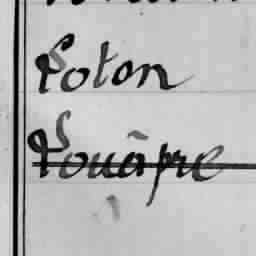 Loton
Louâpre